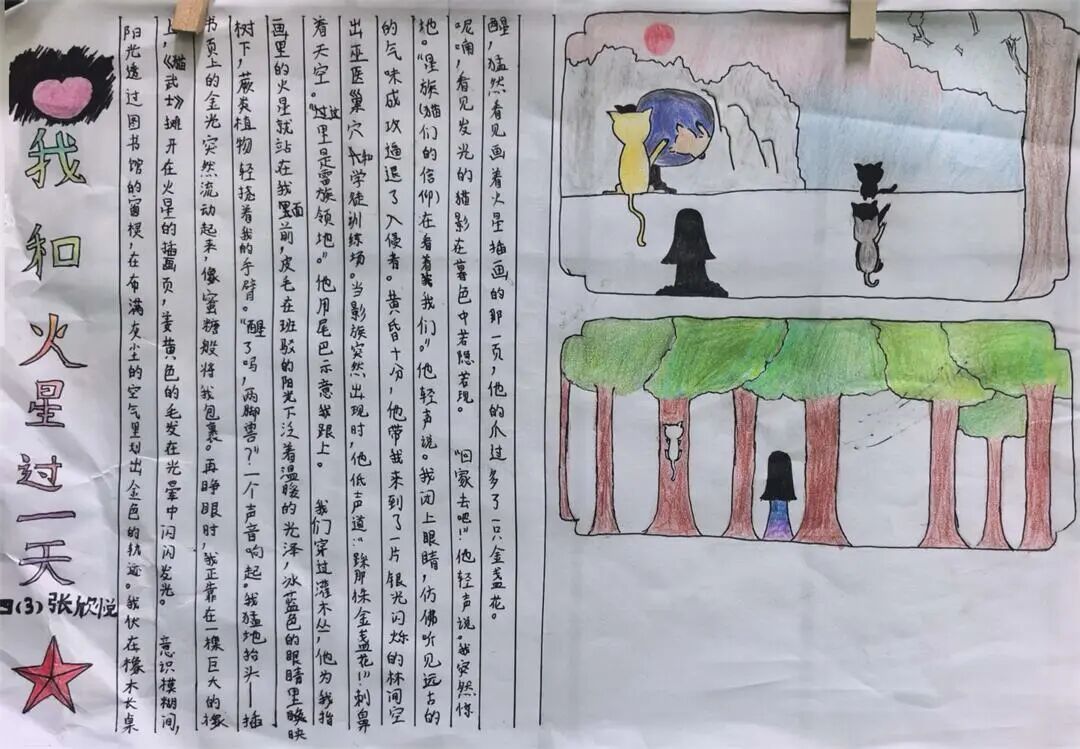 我和火星过一天
四(3)张欣悦
阳光透过图书馆的窗棂,在布满灰尘的空气里划出金色的轨迹。我伏在橡木长桌
上,《猫武士》摊开在火星的插画页,姜黄色的毛发在光晕中闪闪发光。 意识模糊间,
书页上的金光突然流动起来,像蜜糖般将我包裹。再睁眼时,我正靠在一棵巨大的橡
树下,蕨类植物轻挠着我的手臂。“醒了吗,两脚兽?”一个声音响起。我猛地抬头——插
画里的火星就站在我面前,皮毛在班驳的阳光下泛着温暖的光泽,冰蓝色的眼睛里映
着天空。“这里是雷族领地。”他用尾巴示意我跟上。 我们穿过灌木丛,他为我指
出巫医巢穴和学徒训练场。当影族突然出现时,他低声道:“踩那株金盏花!”刺鼻
的气味成攻逼退了入侵者。黄昏十分,他带我来到了一片银光闪烁的林间空
地。“星族(猫们的信仰)在看着我们。”他轻声说。我闭上眼睛,仿佛听见远古的
呢喃,看见发光的猫影在暮色中若隐若现。 “回家去吧!”他轻声说。我突然惊
醒,猛然看见画着火星插画的那一页,他的爪过多了一只金盏花。